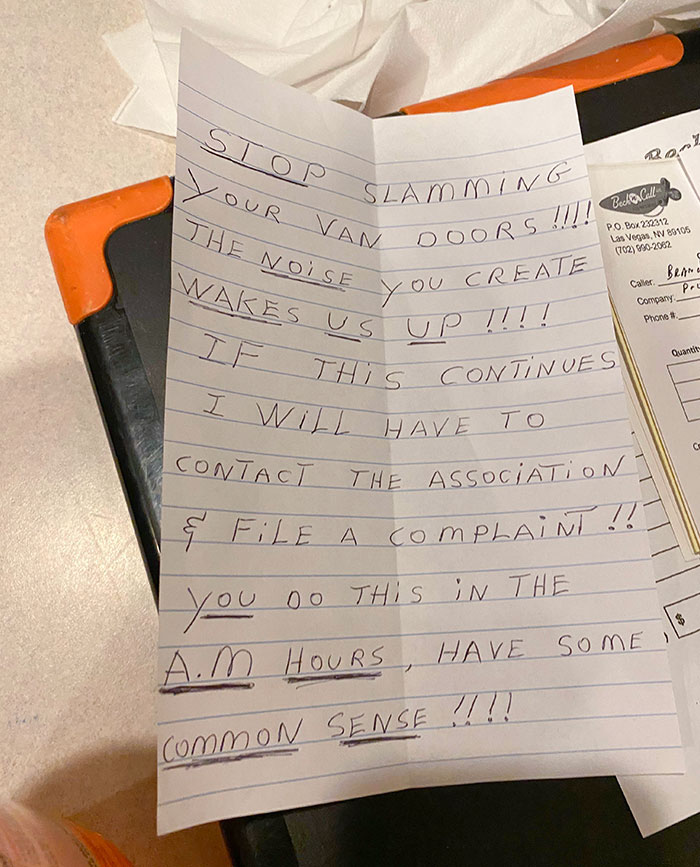 STOP SLAMMING
YOUR VAN DOORS !!!!
THE NOISE YOU CREATE
WAKES US UP !!!!
IF THIS CONTINUES
I WILL HAVE TO
CONTACT THE ASSOCIATION
& FILE A COMPLAINT !!
YOU DO THIS IN THE
A.M HOURS, HAVE SOME
COMMON SENSE !!!!
P.O. Box 232312
Las Vegas, NV 89105
(702) 990-2062
Caller:
Company:
Phone #:
$